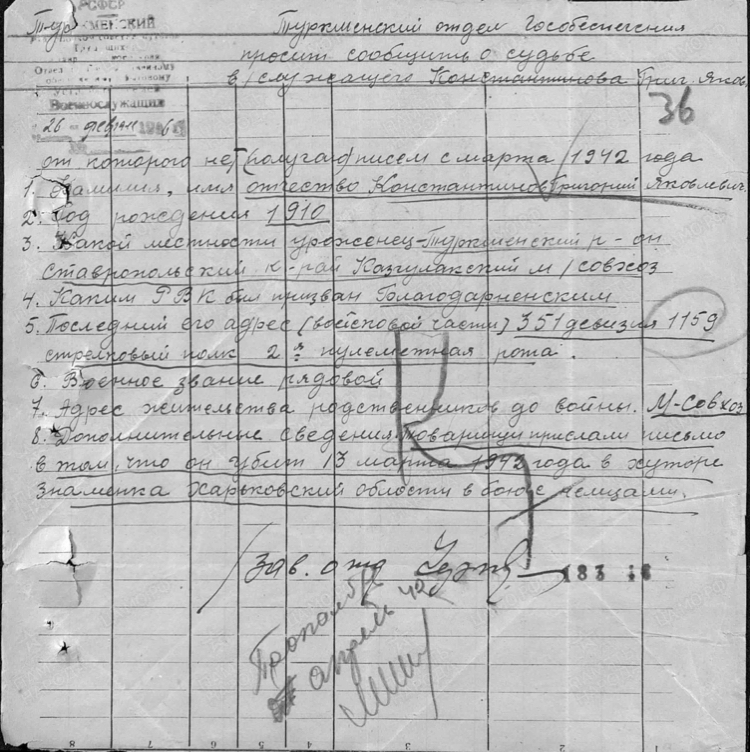 РСФСР
Тур ТУРКМЕНСКИЙ
Отдел
Военнослужащих
"26" февраля 1946
Туркменский отдел Гособеспечения
просит сообщить о судьбе
в/служащего Константинова Григ. Яков.
36
от которого нет (получаю) писем с марта 1942 года
1. Фамилия, имя отчество Константинов Григорий Яковлевич.
2. Год рождения 1910
3. Какой местности уроженец - Туркменский р-он
Ставропольский к-рай Казгулакский м/совхоз
4. Каким РВК был призван Благодарненским
5. Последний его адрес (войсковой части) 351 девизия 1159
стрелковый полк 2я пулеметная рота.
6. Военное звание рядовой
7. Адрес жительства родственников до войны. М-Совхоз
8. Дополнительные сведения товарищи прислали письмо
в том, что он убит 13 марта 1942 года в хуторе
Знаменка Харьковский области в бою с немцами.
/Зав. отд
183
Пропал
апрель 42
8 7 6 5 4 3 2 1